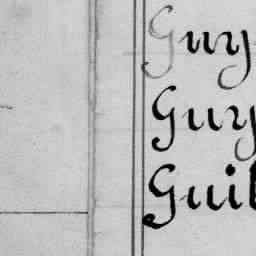 Guy
Guy
Guil